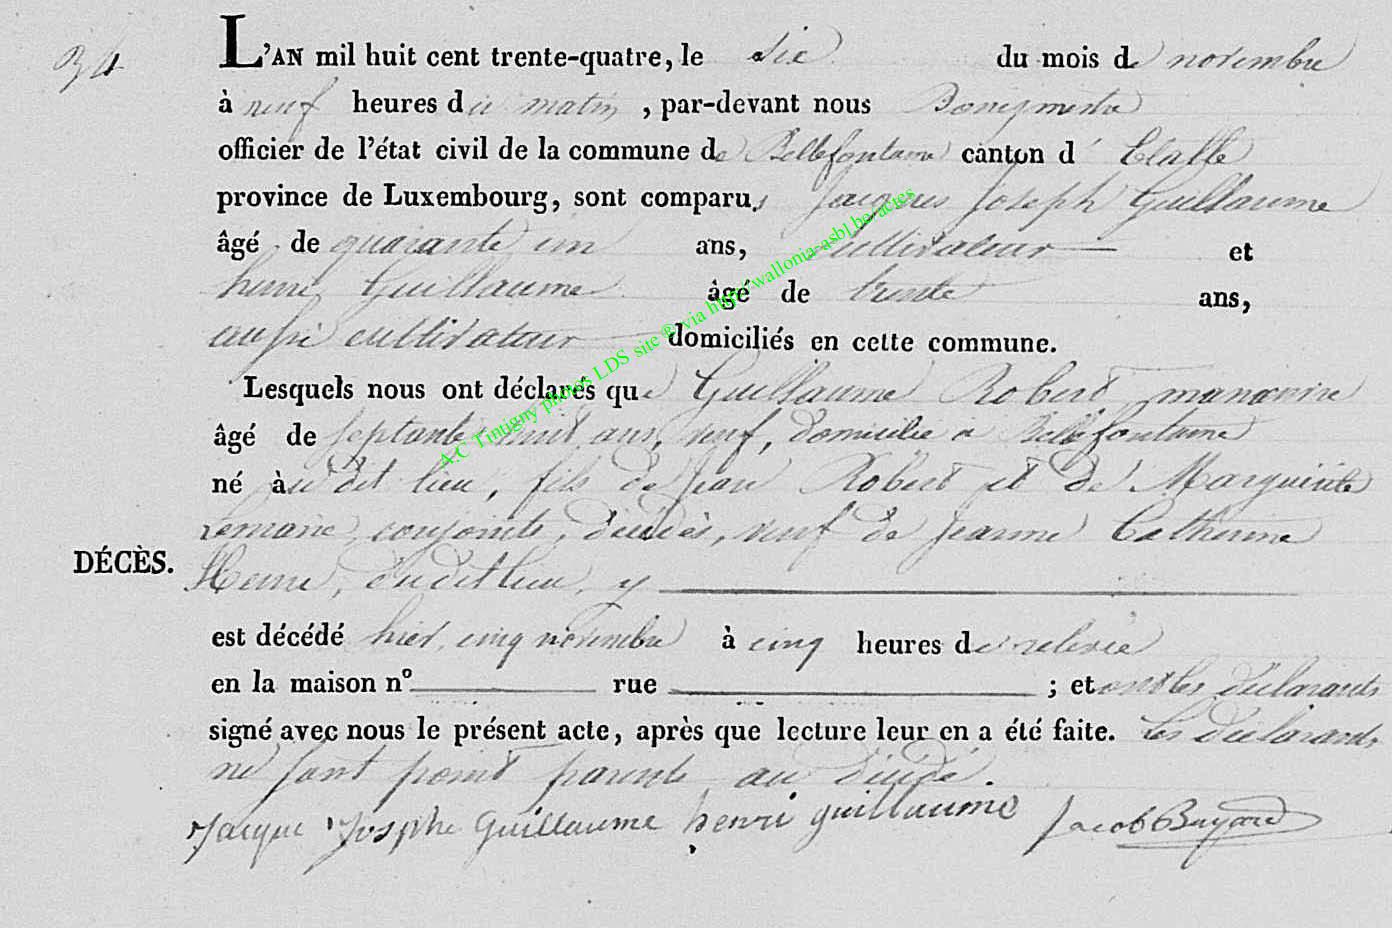 34
L'AN mil huit cent trente-quatre, le six du mois de novembre
à neuf heures du matin, par-devant nous Bourgmestre
officier de l'état civil de la commune de Bellefontaine canton d'Etalle
province de Luxembourg, sont comparus Jacques Joseph Guillaume
âgé de quarante un ans, cultivateur et
henri Guillaume âgé de trente ans,
aussi cultivateur domiciliés en cette commune.
Lesquels nous ont déclarés que Guillaume Robert manœuvre
âgé de septante huit ans, veuf, domicilié a Bellefontaine
né à du dit lieu, fils de Jean Robert et de Marguerite
conjoints, décédés, veuf de Jeanne Catherine
dudit lieu, y
DÉCÈS.
est décédé hier, cinq novembre à cinq heures de relevée
en la maison nº rue ; et ont les déclarants
signé avec nous le présent acte, après que lecture leur en a été faite. Les déclarants
ne sont point parents au décédé.
Jacque Josphe Guillaume henri guillaume Jacob Bayard
A.C Tintigny photos LDS site ® via http://wallonia-asbl.be/actes